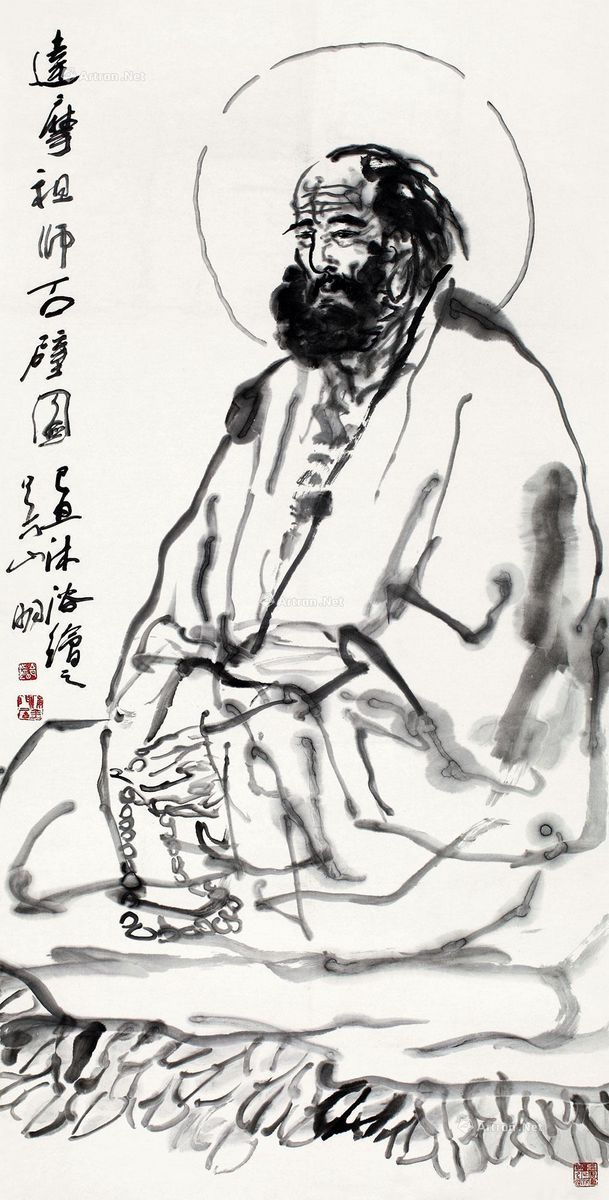 達摩祖師面壁圖
己丑沐浴繪之
吴山明
Artron.Net
Artron.Net
Artron.Net